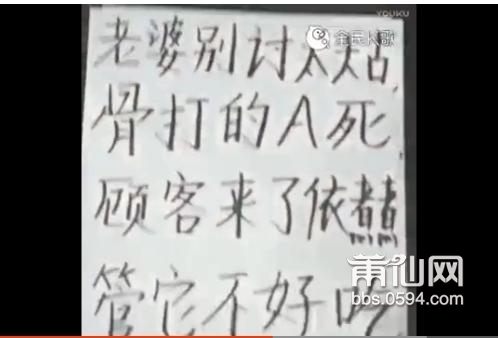 YOUKU
全民K歌
老婆别讨太
骨打的A死
顾客来了依
管它不好
莆仙网
bbs.0594.com